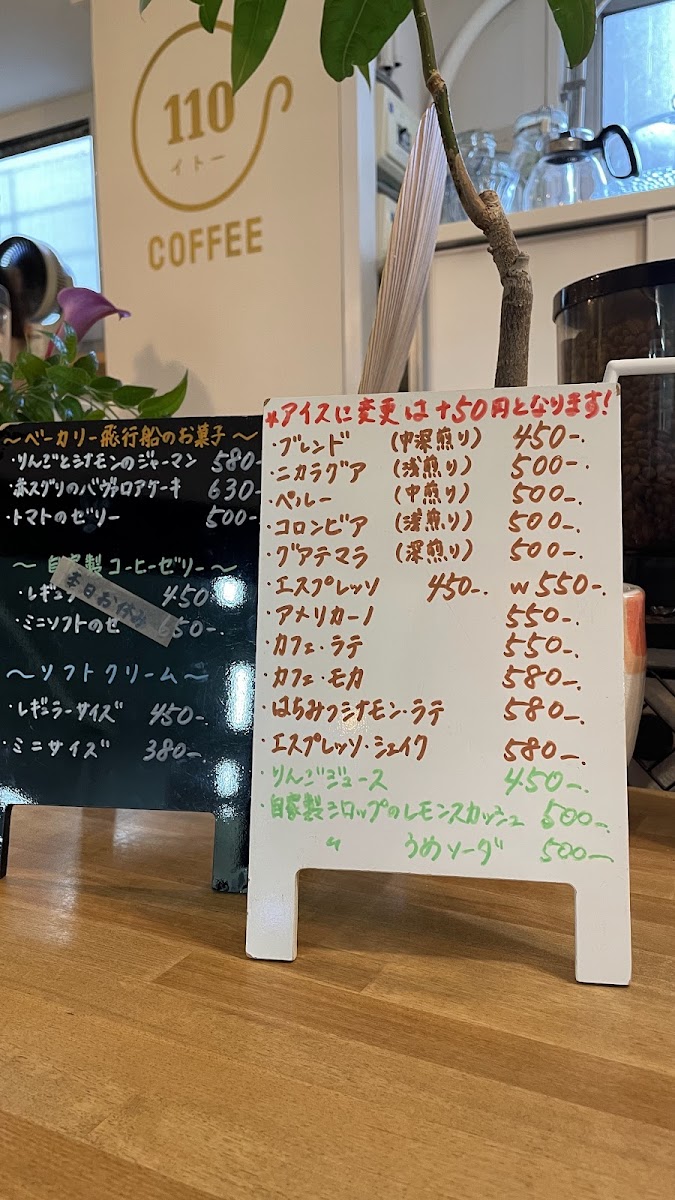 110
イトー
COFFEE
～ベーカリー飛行船のお菓子～
・りんごとシナモンのジャーマン 580-
・赤スグリのババロアケーキ 630-
・トマトのゼリー 500-
～自家製コーヒーゼリー～
・レギュ 450
本日お休み
・ミニソフトのゼ 650-.
～ソフトクリーム～
・レギュラーサイズ 450-.
・ミニサイズ 380-.
*アイスに変更は+50円となります!
・ブレンド (中深煎り) 450-.
・ニカラグア (浅煎り) 500-.
・ペルー (中煎り) 500-.
・コロンビア (浅煎り) 500-.
・グアテマラ (深煎り) 500-.
・エスプレッソ 450-. W 550-.
・アメリカーノ 550-.
・カフェ・ラテ 550-.
・カフェ・モカ 580-.
・はちみつシナモン・ラテ 580-.
・エスプレッソ・シェイク 580-.
・りんごジュース 450-.
・自家製シロップのレモンスカッシュ 500-.
〃 うめソーダ 500-